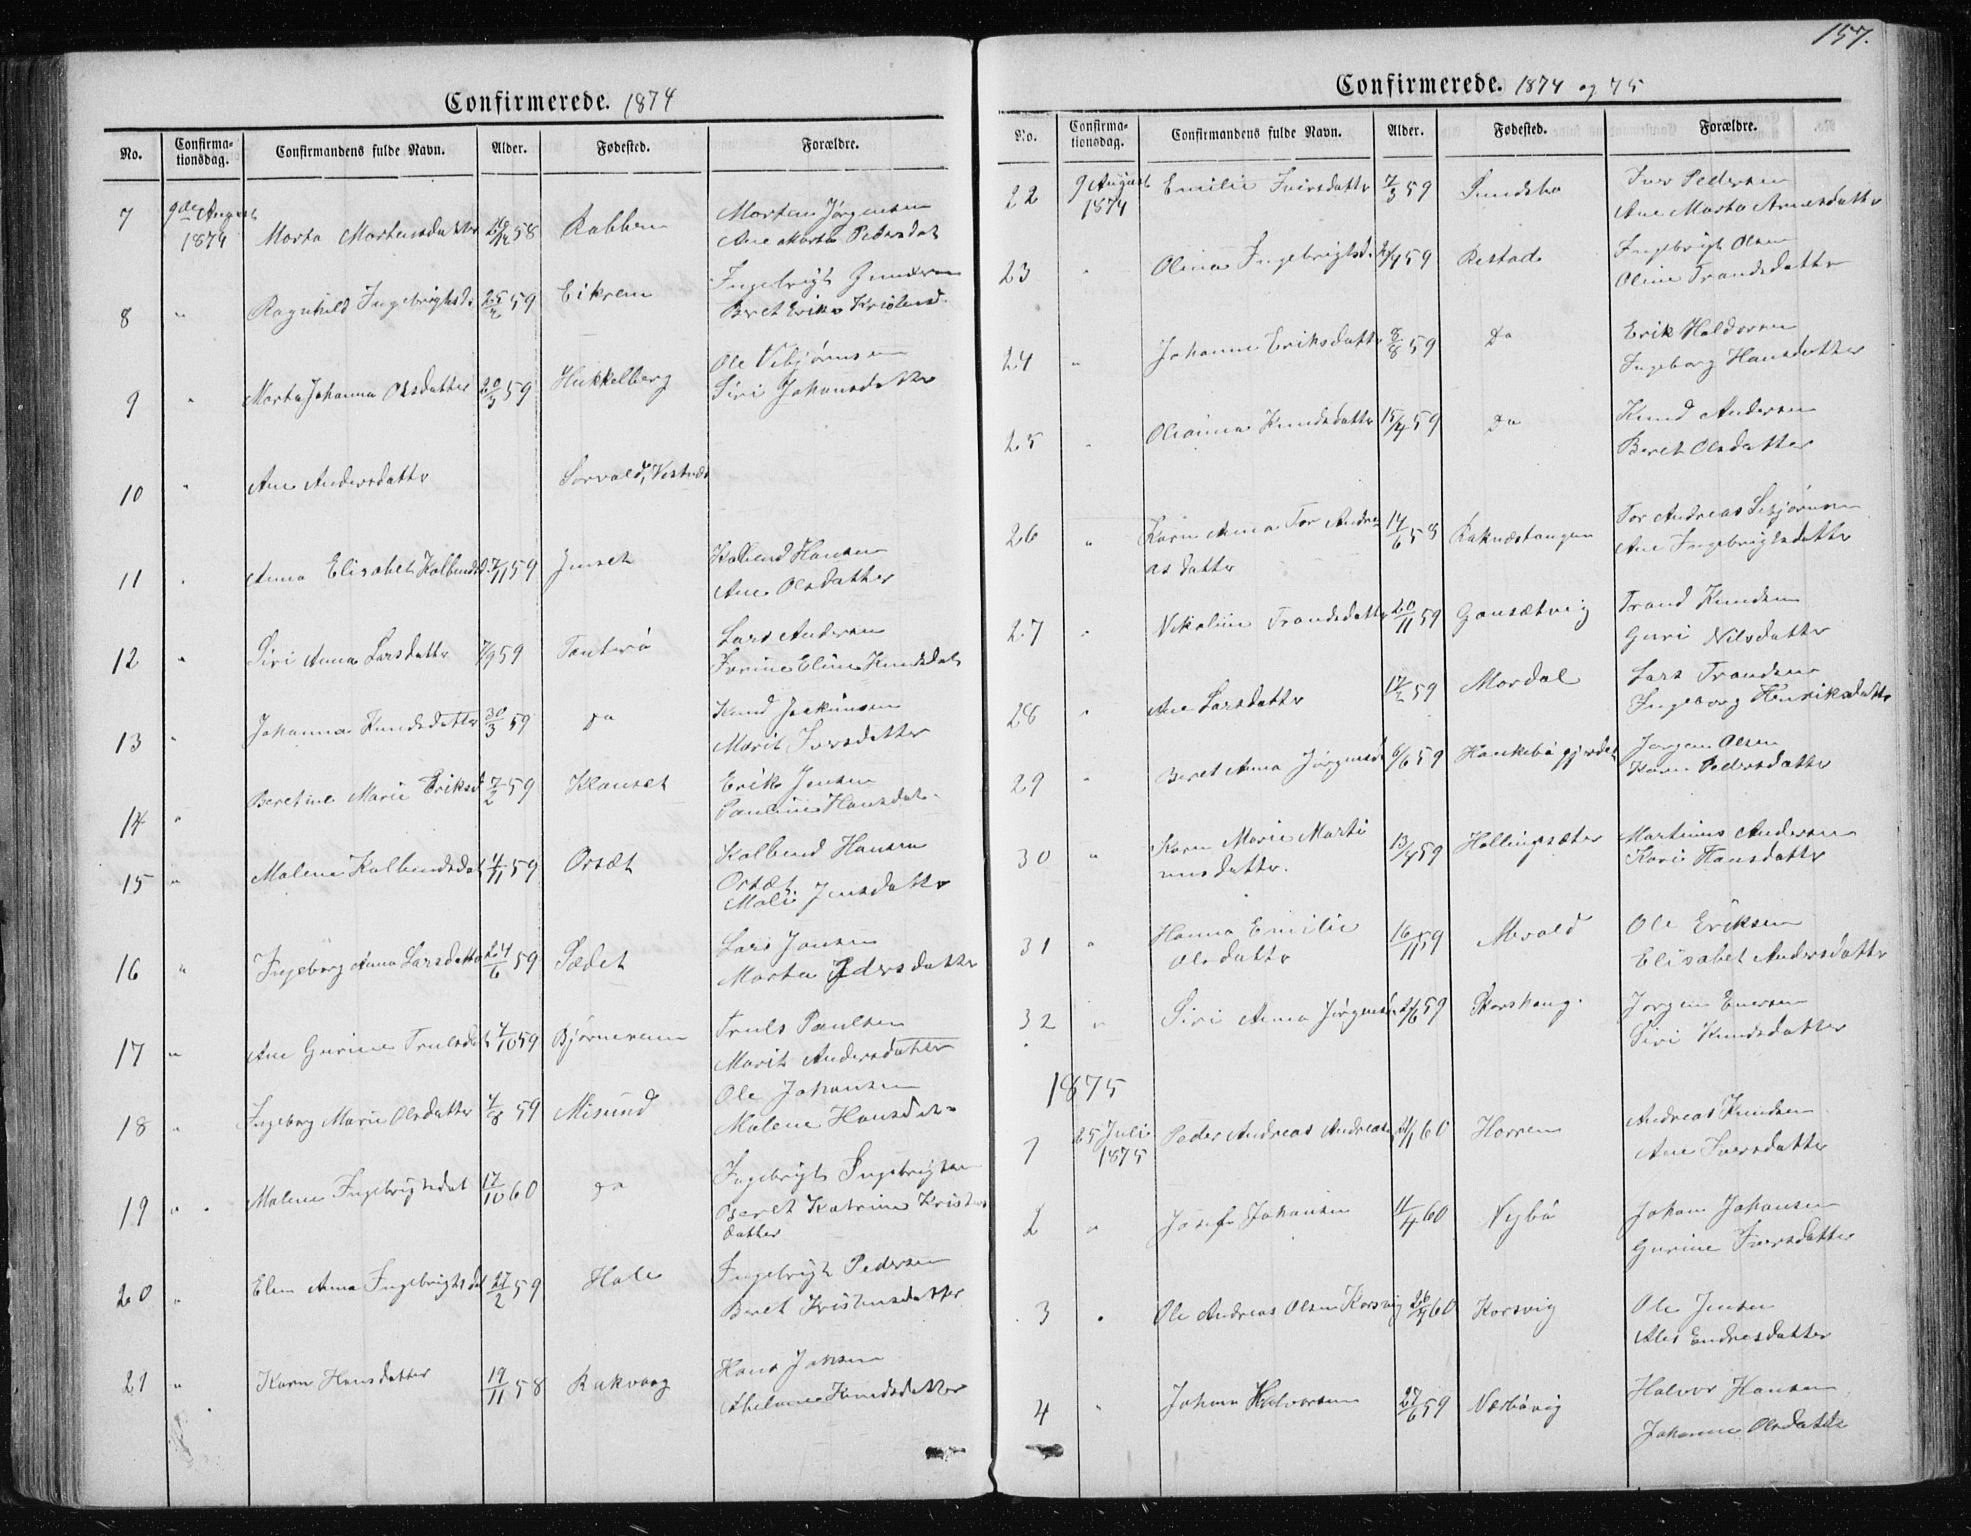 Confirmerede. 1874
No. Confirma- tionsdag. Confirmandens fulde Navn. Alder. Fødested. Forældre.
7 9de August 1874 Marta Mortensdatter 58 Rabben Morten Jørgensen
Ane Marta Pedersdat
8 " Ragnhild Ingebrigtsd. 25/2 59 Eikrem Ingebrigt Gundersen
Beret Erika Kristensd.
9 " Marta Johanna Olsdatter 20/3 59 Hukkelberg Ole Vebjørnsen
Siri Johansdatter
10 " Ane Andersdatter Sorvald, Vestnæs
11 " Anna Elisabet Kolbendsd. 27/11 59 Jenset Kolbend Hansen
Ane Olsdatter
12 " Siri Anna Larsdatter 7/9 59 Tautrø Lars Andersen
Karine Eline Knudsdat
13 " Johanna Knudsdatter 30/3 59 Do Knud Joakimsen
Marit Iversdatter
14 " Beretine Marie Eriksd 7/2 59 Klauset Erik Jensen
Pauline Hansdat.
15 " Malene Kolbendsdat 4/11 59 Orsæt Kolbend Hansen
Orsæt
Mali Jensdatter
16 " Ingeborg Anna Larsdatter 24/6 59 Sædet Lars Jonsen
Marta Pedersdatter
17 " Ane Gurine Trulsdat 4/10 59 Bjørnerem Truls Paulsen
Marit Andersdatter
18 " Ingeborg Marie Olsdatter 4/8 59 Misund Ole Johansen
Malene Hansdat.
19 " Malene Ingebrigtsdat 17/10 60 Do Ingebrigt Ingebrigtsen
Beret Katrine Kristens
datter
20 " Elen Anna Ingebrigtsdat 27/2 59 Hole Ingebrigt Pedersen
Beret Kristensdatter
21 " Karn Hansdatter 19/11 58 Rakvaag Hans Johsen
Knudsdatter
157.
Confirmerede. 1874 og 75
No. Confirma- tionsdag. Confirmandens fulde Navn. Alder. Fødested. Forældre.
22 9 August 1874 Emilie Iversdatter 7/3 59 Sundsbø Iver Pedersen
Ane Marta Arnesdatter
23 " Olina Ingebrigtsd. 59 Restad Ingebrigt Olsen
Oline Trondsdatter
24 " Johanne Eriksdatter 8/8 59 Do Erik Haldorsen
Ingeborg Hansdatter
25 " Olianna Knudsdatter 15/4 59 Do Knud Andersen
Beret Olsdatter
26 " Karn Anna Tor Andre 14/6 58 Raknæstangen Tor Andreas
as datter Ane Ingebrigtsdatter
27 " Nikoline Trondsdatter 20/11 59 Gonsætvig Trond Knudsen
Guri Nilsdatter
28 " Ane Larsdatter 17/2 59 Mordal Lars Trondsen
Ingeborg Henriksdatter
29 " Beret Anna Jørgensd 6/6 59 Haukebø gjerdet Jørgen Olsen
Karn Pedersdatter
30 " Karn Marie Marti 13/4 59 Hollingsæter Martinus Andersen
nusdatter. Kari Hansdatter
31 " Hanna Emilie 16/11 59 Mevold Ole Eriksen
Olsdatter Elisabet Andersdatter
32 " Siri Anna Jørgensd 59 Skorshaug. Jørgen Enersen
Siri Knudsdatter
1875
1 25 Juli 1875 Peder Andreas Andreasen 60 Horrem Andreas Knudsen
Ane Iversdatter
2 " Josef Johansen 11/4 60 Nybø Johan Johansen
Gurine Iversdatter
3 " Ole Andreas Olsen Korsvig 60 Korsvig Ole Jensen
Ales Endresdatter
4 " Johan Halvorsen 27/6 59 Nærbøvig Halvor Hansen
Johanne Olsdatter